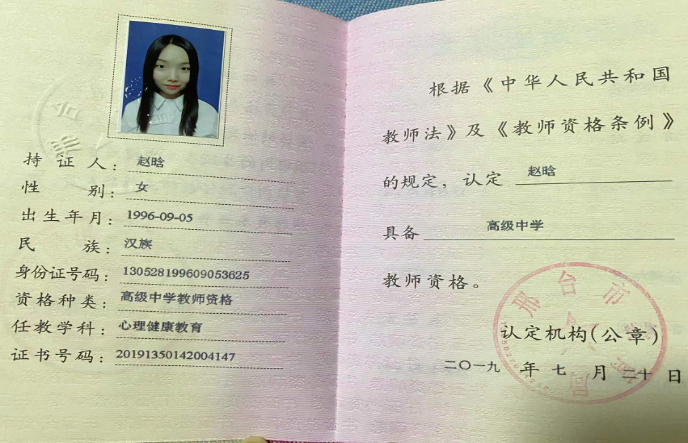 持证人：赵晗
性别：女
出生年月：1996-09-05
民族：汉族
身份证号码：130528199609053625
资格种类：高级中学教师资格
任教学科：心理健康教育
证书号码：20191350142004147
根据《中华人民共和国
教师法》及《教师资格条例》
的规定，认定 赵晗
具备 高级中学
教师资格。
邢台市
认定机构(公章)
二〇一九 年 七 月 二十 日